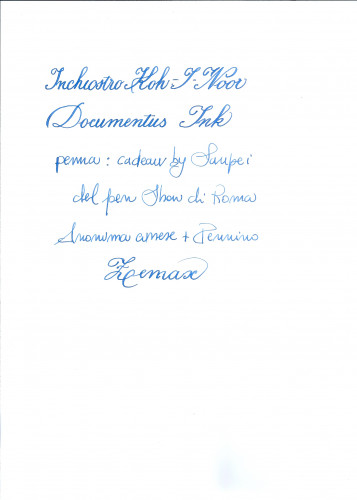 Inchiostro Koh-I-Noor
Documentus Ink
penna: cadeau by Sanpei
del pen Show di Roma
Anonima cinese + Pennino
Zemax